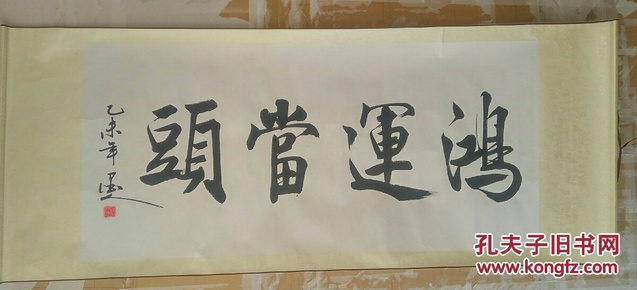 鴻運當頭
乙未年
孔夫子旧书网
www.kongfz.com